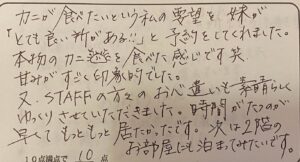 カニが食べたいという私の要望を妹が
「とても良い所がある!!」と予約をしてくれました。
本物のカニを食べた感じです笑
甘みがすごく印象的でした。
又、STAFFの方々のお心遣いも素晴らしく
ゆっくりさせていただきました。時間がたつのが
早くてもっともっと居たかったです。次は2階の
お部屋にも泊まってみたいです。
10点満点で 10 点